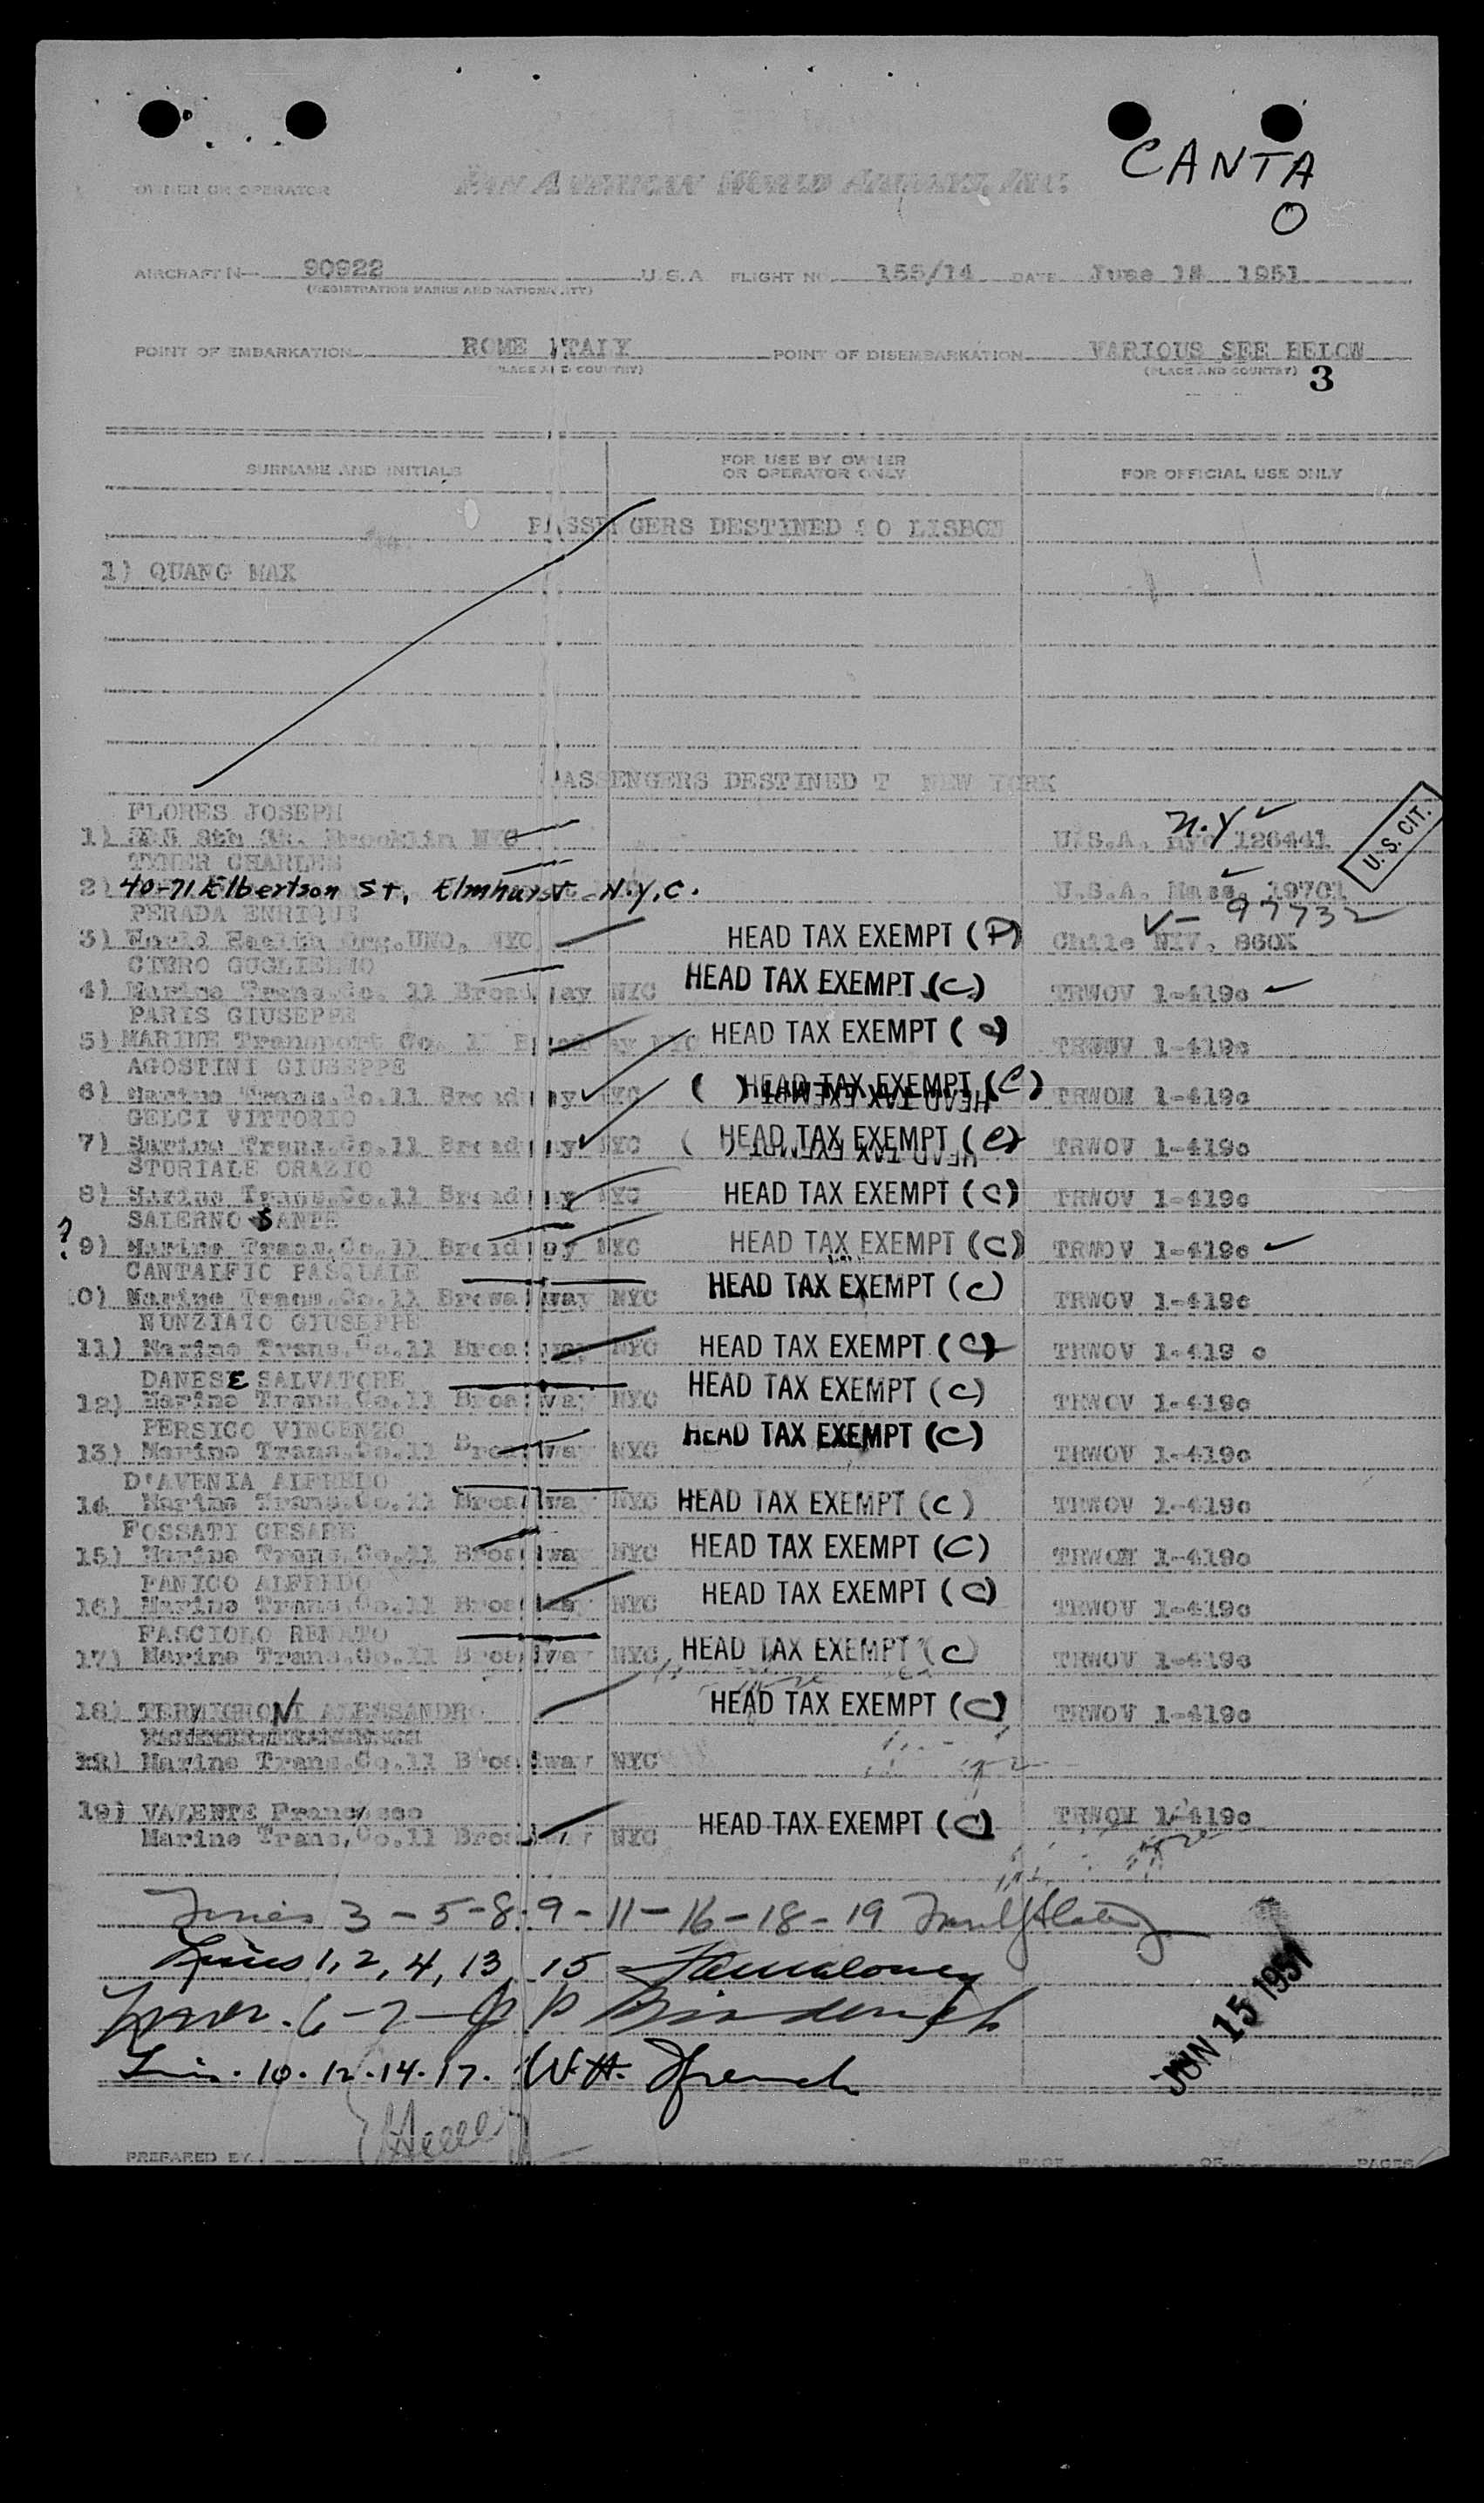 CANTA
O
OWNER OR OPERATOR PAN AMERICAN WORLD AIRWAYS, INC.
AIRCRAFT N— 90922 U.S.A FLIGHT NO. 155/14 DATE June 14 1951
(REGISTRATION MARKS AND NATIONALITY)
POINT OF EMBARKATION ROME ITALY POINT OF DISEMBARKATION VARIOUS SEE BELOW
(PLACE AND COUNTRY) (PLACE AND COUNTRY) 3
SURNAME AND INITIALS FOR USE BY OWNER OR OPERATOR ONLY FOR OFFICIAL USE ONLY
PASSENGERS DESTINED TO LISBON
1) QUANG MAX
PASSENGERS DESTINED T NEW YORK
FLORES JOSEPH
1) 8th Brooklin NYC U.S.A. NYC 126441 N.Y U.S. CIT.
CHARLES
2) 40-71 Elbertson St, Elmhurst N.Y.C. U.S.A. Mass. 19701
PERADA ENRIQUE 97732
3) World Health Org.UNO, NYC HEAD TAX EXEMPT (P) Chile NIV. 860X
OTERO GUGLIELMO
4) Marine Trans.Co. 11 Broadway NYC HEAD TAX EXEMPT (C) TRWOV 1-419c
PARIS GIUSEPPE
5) MARINE Transport Co. 11 Broadway NYC HEAD TAX EXEMPT (C) TRWOV 1-419c
AGOSTINI GIUSEPPE
6) Marine Trans.Co.11 Broadway NYC ( ) HEAD TAX EXEMPT (C) TRWOV 1-419c
HEAD TAX EXEMPT
GELCI VITTORIO
7) Marine Trans.Co.11 Broadway NYC ( ) HEAD TAX EXEMPT (C) TRWOV 1-419c
HEAD TAX EXEMPT
STORIALE ORAZIO
8) Marine Trans.Co.11 Broadway NYC HEAD TAX EXEMPT (C) TRWOV 1-419c
SALERNO SANTE
? 9) Marine Trans.Co.11 Broadway NYC HEAD TAX EXEMPT (C) TRWOV 1-419c
CANTALFIO PASQUALE
10) Marine Trans.Co.11 Broadway NYC HEAD TAX EXEMPT (C) TRWOV 1-419c
NUNZIATO GIUSEPPE
11) Marine Trans.Co.11 Broadway NYC HEAD TAX EXEMPT (C) TRWOV 1-419 c
DANESE SALVATORE
12) Marine Trans.Co.11 Broadway NYC HEAD TAX EXEMPT (C) TRWOV 1-419c
PERSICO VINCENZO
13) Marine Trans.Co.11 Broadway NYC HEAD TAX EXEMPT (C) TRWOV 1-419c
D'AVENIA ALFREDO
14 Marine Trans.Co.11 Broadway NYC HEAD TAX EXEMPT (C) TRWOV 1-419c
FOSSATI CESARE
15) Marine Trans.Co.11 Broadway NYC HEAD TAX EXEMPT (C) TRWOV 1-419c
PANICO ALFREDO
16) Marine Trans.Co.11 Broadway NYC HEAD TAX EXEMPT (C) TRWOV 1-419c
FASCIOLO RENATO
17) Marine Trans.Co.11 Broadway NYC HEAD TAX EXEMPT (C) TRWOV 1-419c
18) TERMIGNONI ALESSANDRO HEAD TAX EXEMPT (C) TRWOV 1-419c
Marine Trans.Co.11 Broadway NYC
19) VALENTE Francesco HEAD TAX EXEMPT (C) TRWOV 1-419c
Marine Trans.Co.11 Broadway NYC
Lines 3 - 5 - 8 - 9 - 11 - 16 - 18 - 19
Lines 1, 2, 4, 13, 15
Lines. 6 - 7 -
Lin. 10. 12. 14. 17. W.H. French
JUN 15 1951
PREPARED BY PAGE OF PAGES